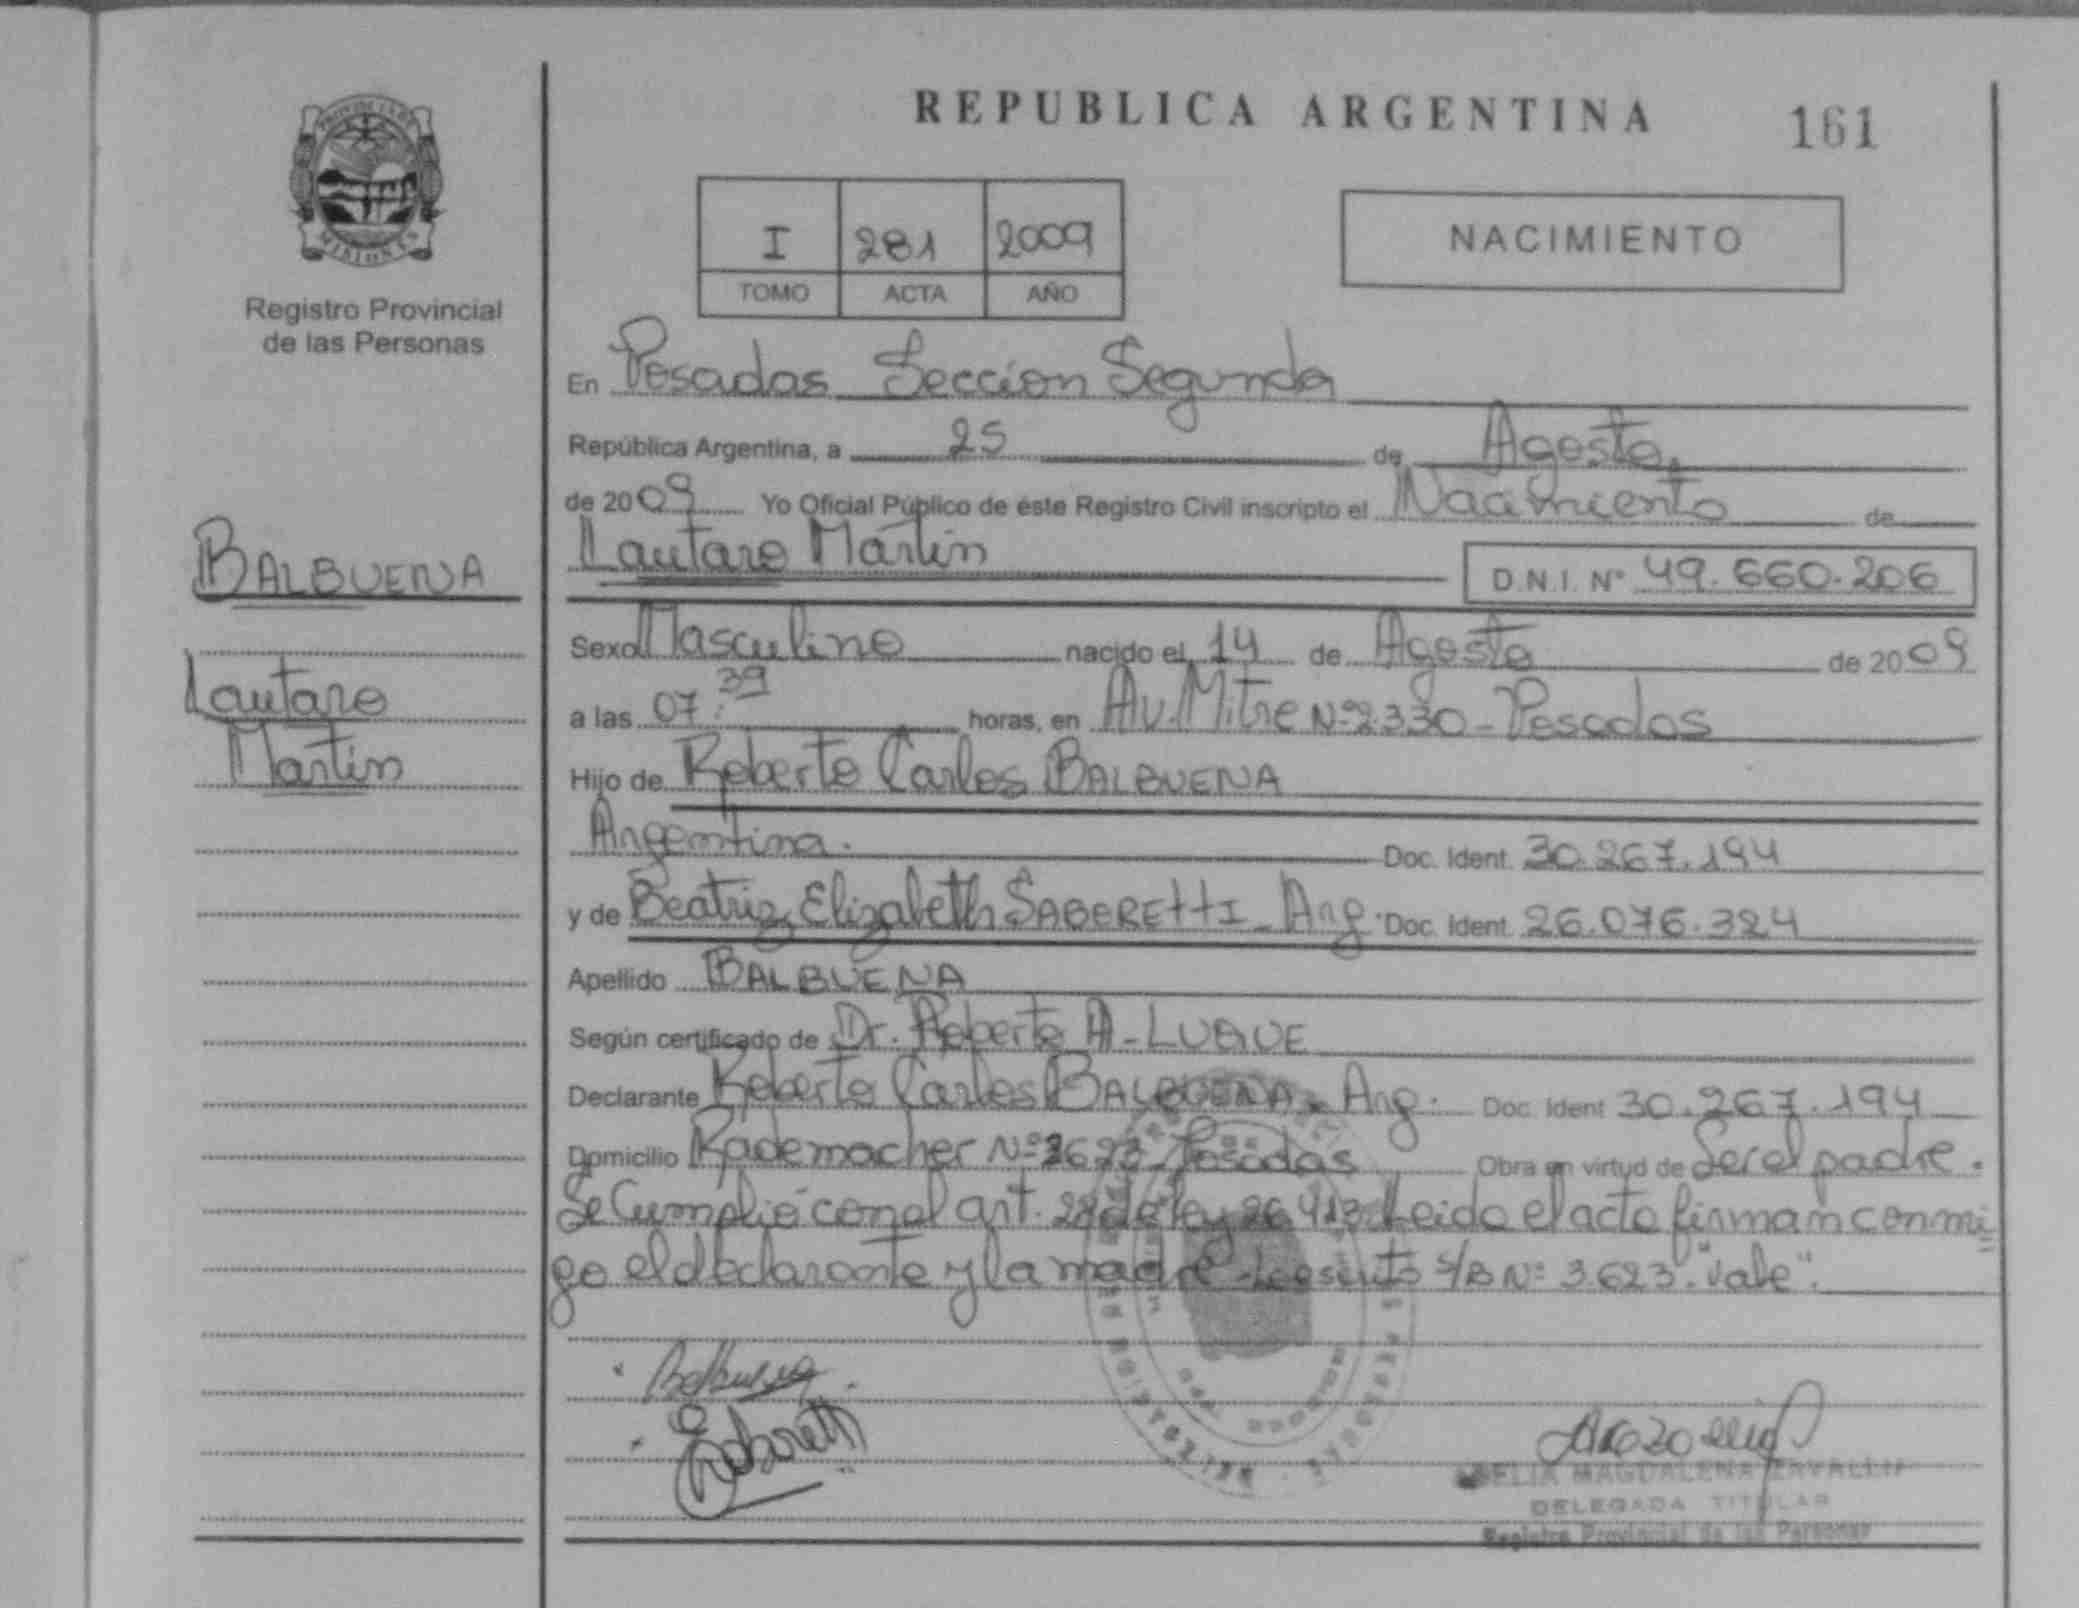 REPUBLICA ARGENTINA
161
PROVINCIA DE
MISIONES
Registro Provincial
de las Personas
I 281 2009
TOMO ACTA AÑO
NACIMIENTO
En Posadas Seccion Segunda
República Argentina, a 25 de Agosto
de 2009 Yo Oficial Público de éste Registro Civil inscripto el Nacimiento de
BALBUENA
Lautaro Martin
D.N.I. Nº 49.660.206
Sexo Masculino nacido el 14 de Agosto de 2009
Lautaro
a las 07:39 horas, en Av. Mitre Nº 2330 - Posadas
Martin
Hijo de Roberto Carlos BALBUENA
Argentina. Doc. Ident. 30.267.194
y de Beatriz Elizabeth SABERETTI - Arg. Doc. Ident. 26.076.324
Apellido BALBUENA
Según certificado de Dr. Roberto A - LUQUE
Declarante Roberto Carlos BALBUENA - Arg. Doc. Ident 30.267.194
Domicilio Rademacher Nº 3623 - Posadas Obra en virtud de Ser el padre.
Se Cumplio con el art. 28 de ley 26.413 Leido el acto firman conmi=
go el declarante y la madre - S/B Nº 3.623. "Vale".
Balbuena
MAGDALENA ZAVALLA
DELEGADA TITULAR
Registro Provincial de las Personas